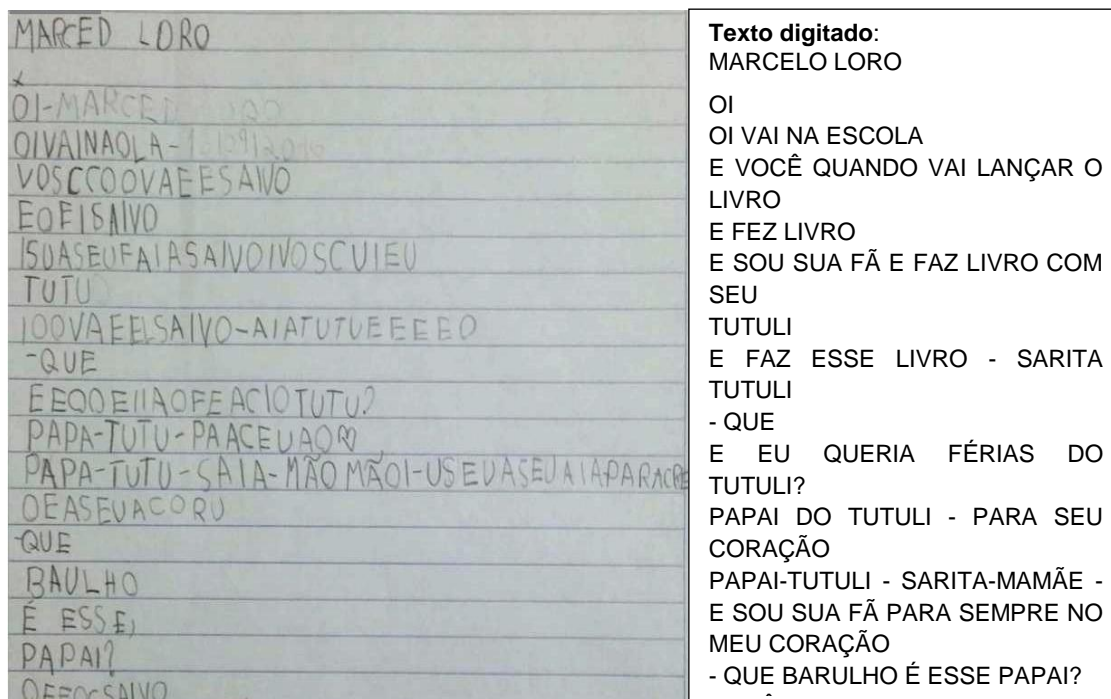 MARCED LORO
OI-MARCED LORO
OIVAINAOLA-
VOSCCOOVAEESAIVO
EOFISAIVO
ISUASEUFAIASAIVOIVOSCUIEU
TUTU
IOOVAEELSAIVO-AIATUTUEEEEO
-QUE
EEQOEIIAOFEACIOTUTU?
PAPA-TUTU-PAACEUAO
PAPA-TUTU-SAIA-MÃOMÃOI-USEUASEUAIAPARACRE
OEASEUACORU
-QUE
BAULHO
É ESSE,
PAPAI?
Texto digitado:
MARCELO LORO
OI
OI VAI NA ESCOLA
E VOCÊ QUANDO VAI LANÇAR O
LIVRO
E FEZ LIVRO
E SOU SUA FÃ E FAZ LIVRO COM
SEU
TUTULI
E FAZ ESSE LIVRO - SARITA
TUTULI
- QUE
E EU QUERIA FÉRIAS DO
TUTULI?
PAPAI DO TUTULI - PARA SEU
CORAÇÃO
PAPAI-TUTULI - SARITA-MAMÃE -
E SOU SUA FÃ PARA SEMPRE NO
MEU CORAÇÃO
- QUE BARULHO É ESSE PAPAI?